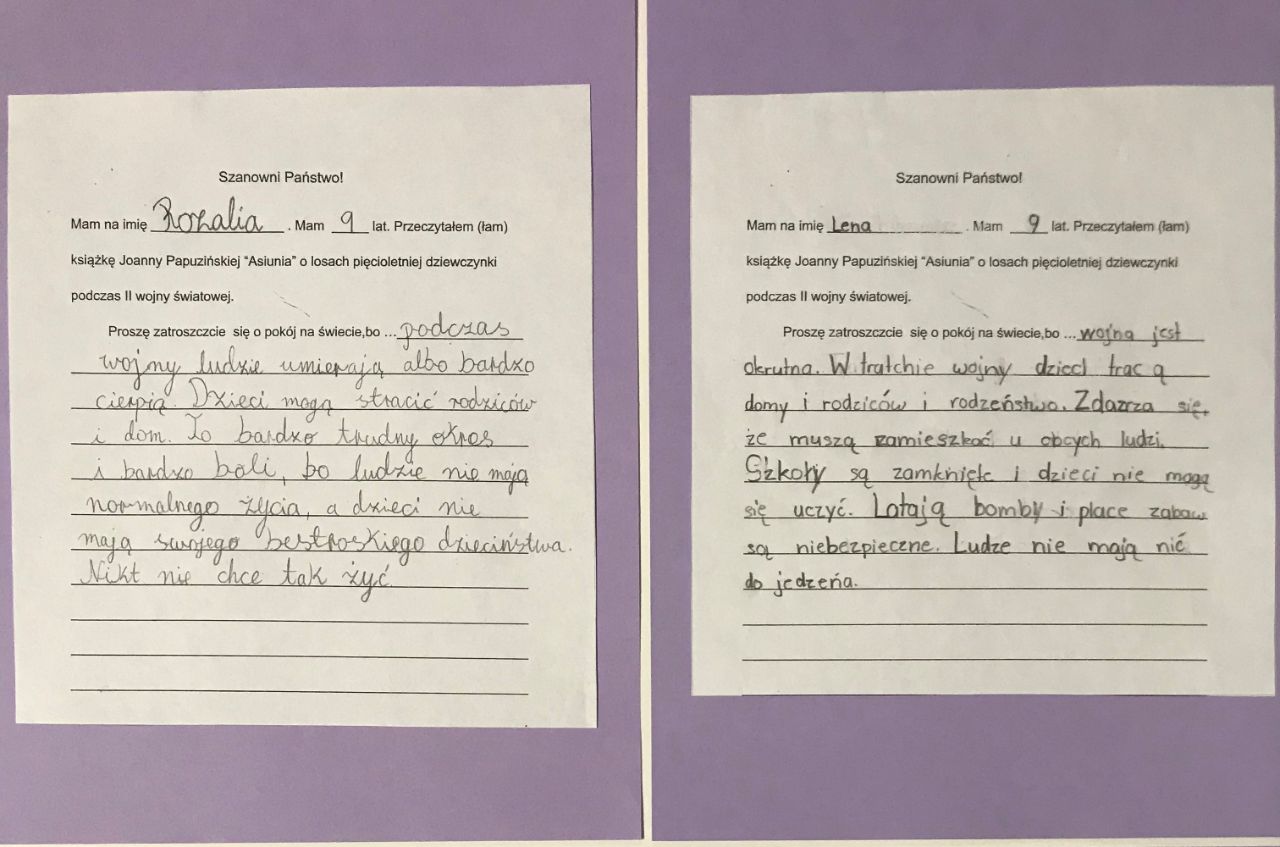 Szanowni Państwo!
Mam na imię Rozalia . Mam 9 lat. Przeczytałem (łam)
książkę Joanny Papuzińskiej "Asiunia" o losach pięcioletniej dziewczynki
podczas II wojny światowej.
Proszę zatroszczcie się o pokój na świecie,bo ... podczas
wojny ludzie umierają albo bardzo
cierpią. Dzieci mogą stracić rodziców
i dom. To bardzo trudny okres
i bardzo boli, bo ludzie nie mają
normalnego życia, a dzieci nie
mają swojego bestroskiego dzieciństwa.
Nikt nie chce tak żyć.
Szanowni Państwo!
Mam na imię Lena . Mam 9 lat. Przeczytałem (łam)
książkę Joanny Papuzińskiej "Asiunia" o losach pięcioletniej dziewczynki
podczas II wojny światowej.
Proszę zatroszczcie się o pokój na świecie,bo ... wojna jest
okrutna. W tratchie wojny dzieci tracą
domy i rodziców i rodzeństwo. Zdazrza się,
że muszą zamieszkać u obcych ludzi.
Szkoły są zamknięte i dzieci nie mogą
się uczyć. Latają bomby i place zabaw
są niebezpieczne. Ludze nie mają nić
do jedzeńa.